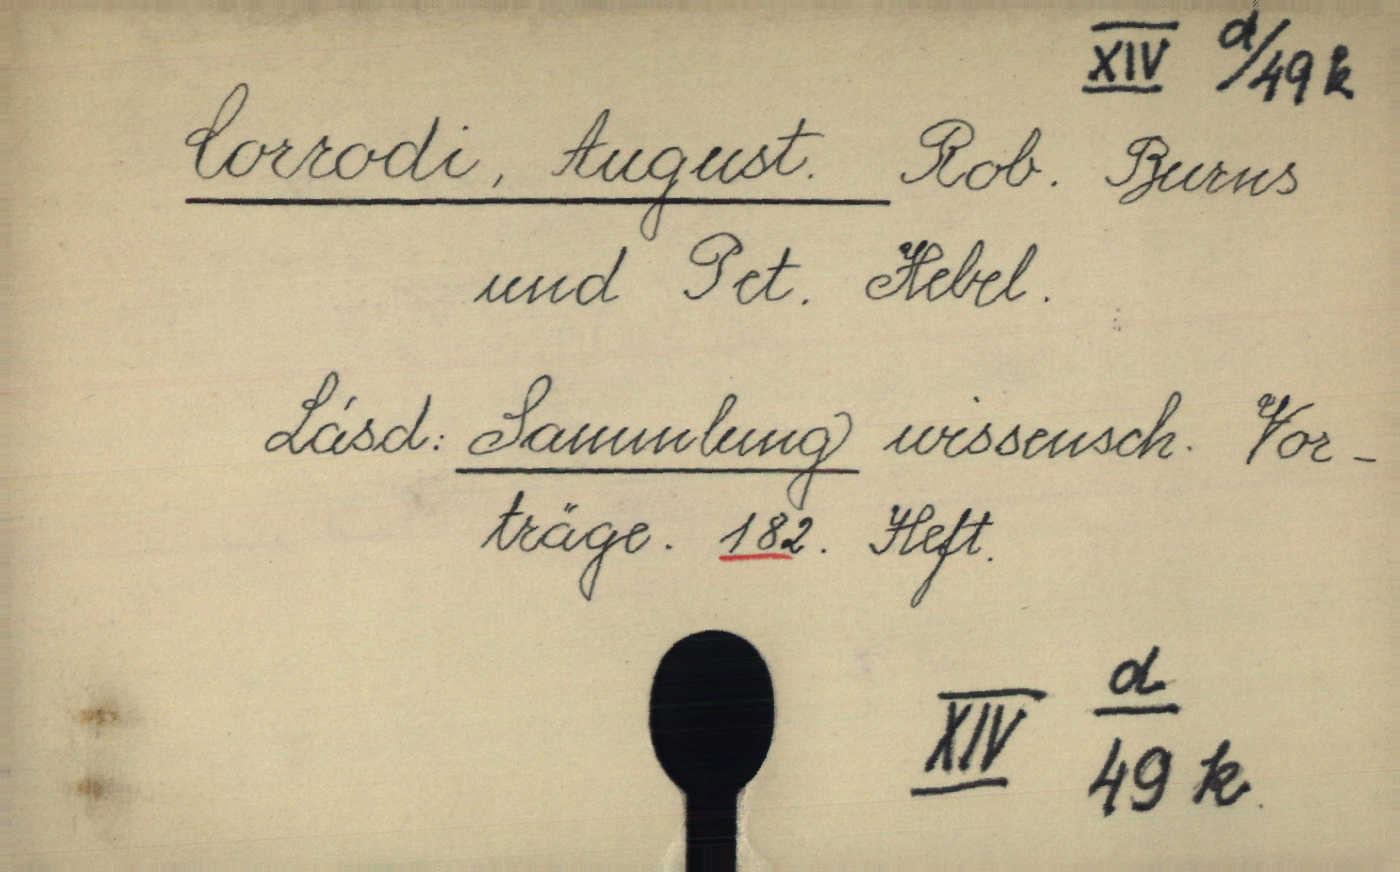 XIV d/49 k
Corrodi, August. Rob. Burns
und Pet. Hebel.
Lásd: Sammlung wissensch. Vor-
träge. 182. Heft.
XIV d
49 k.